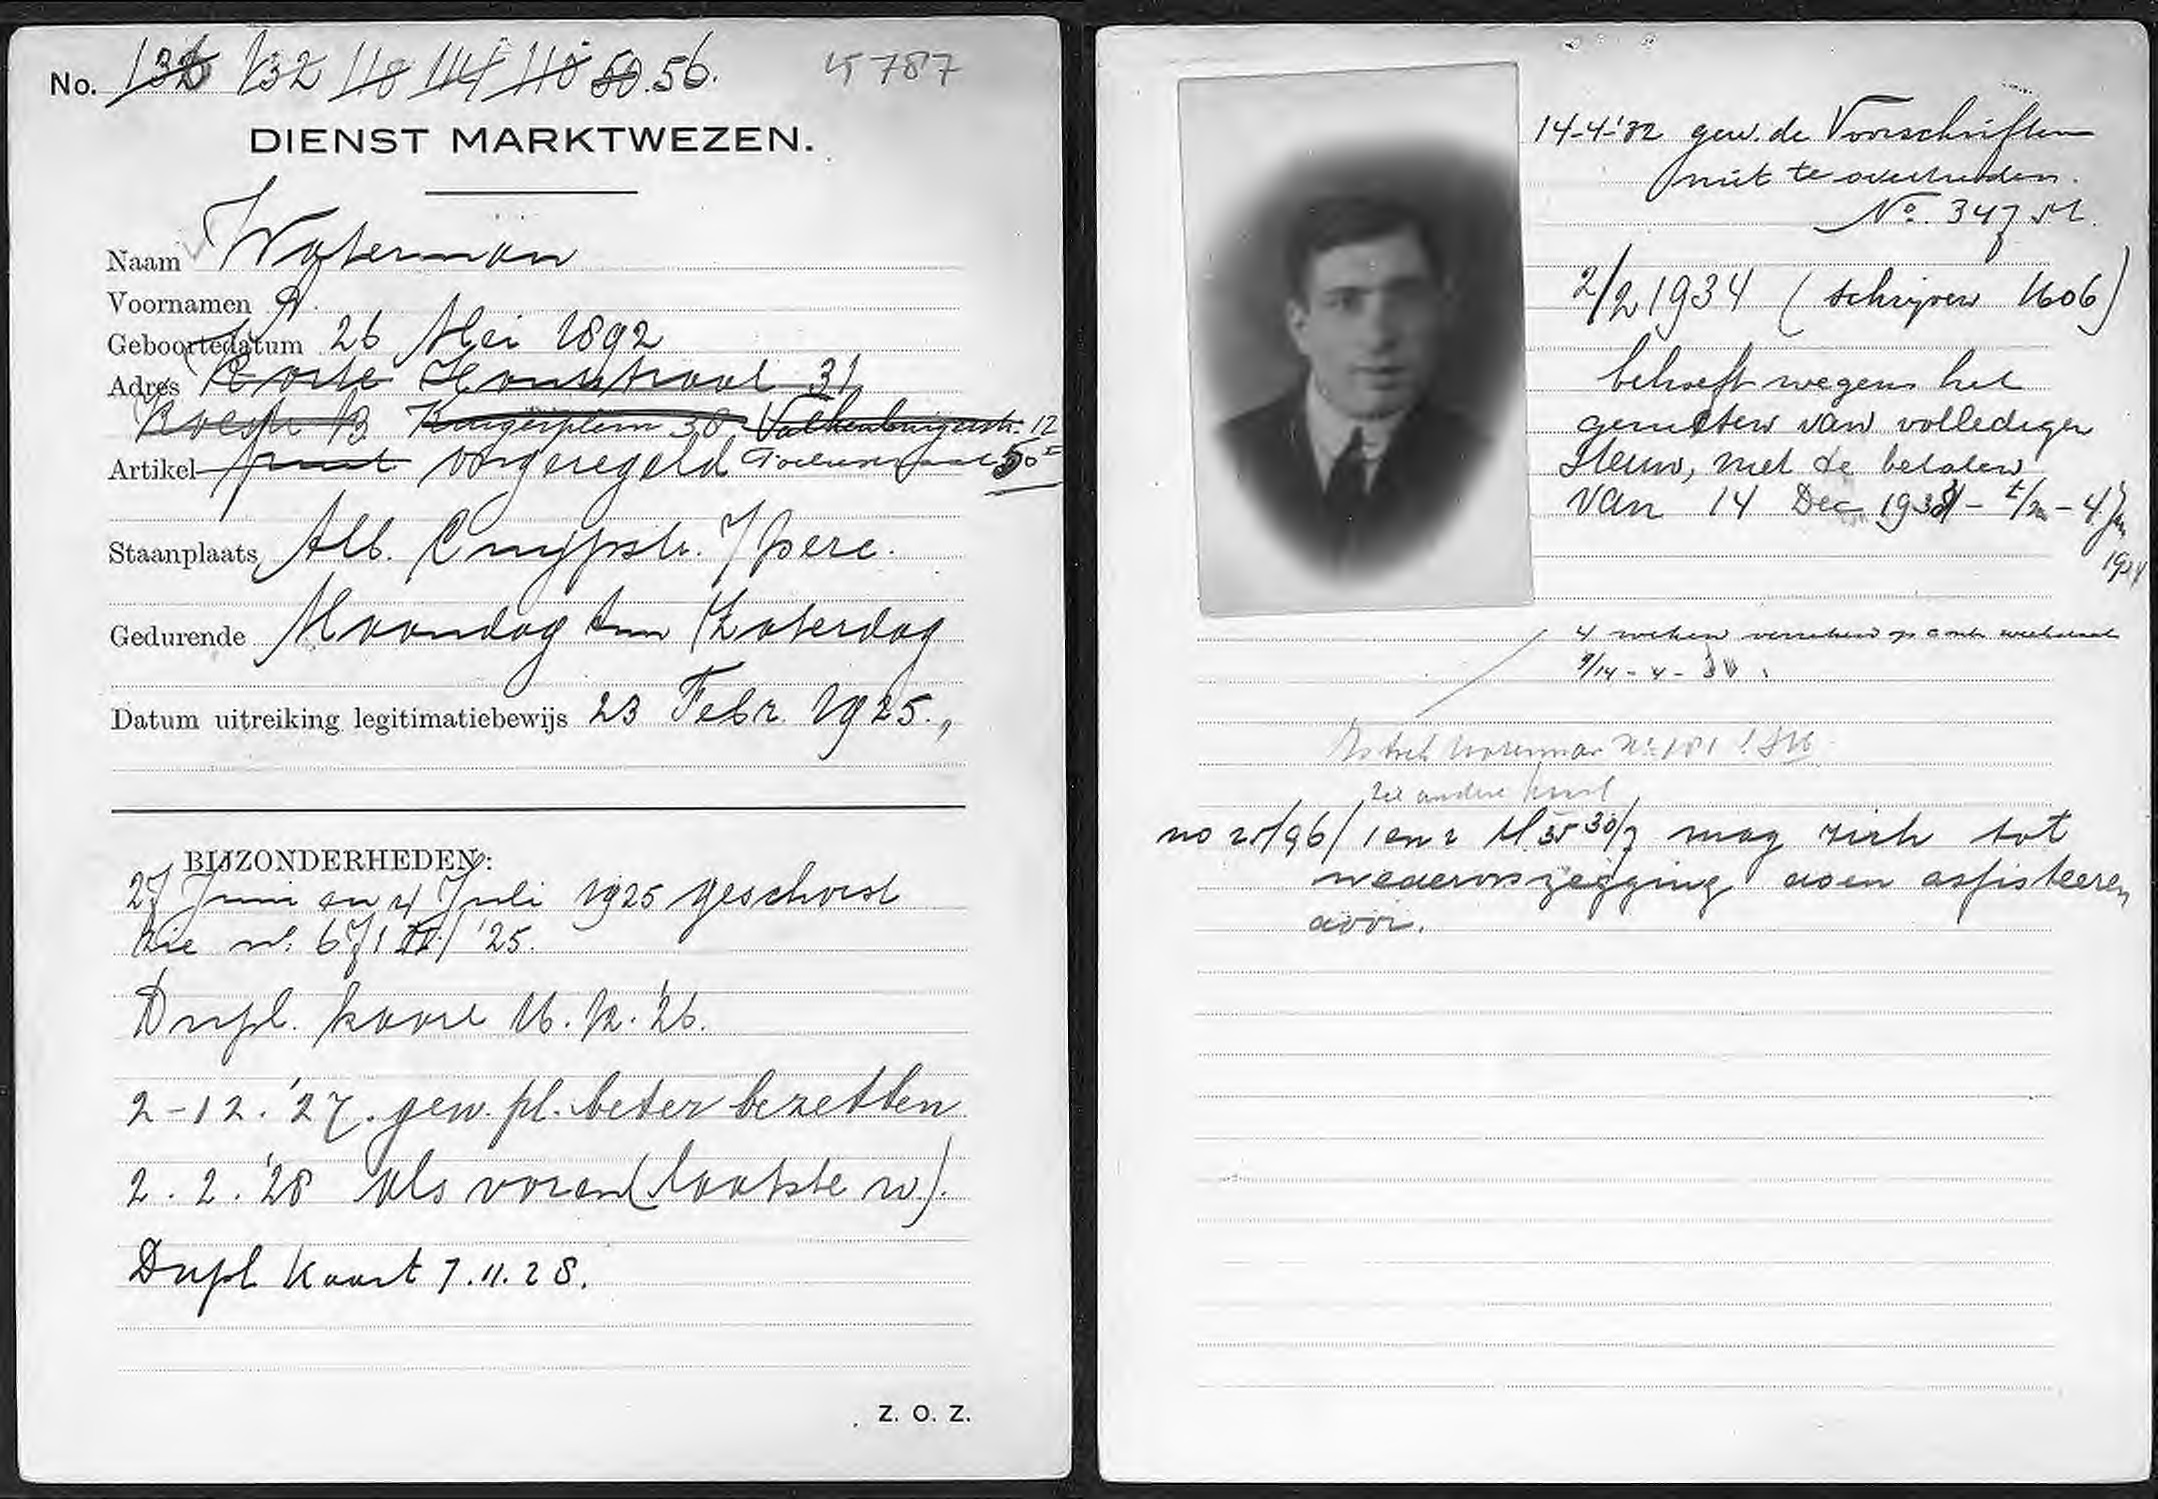 No. 136 132 118 114 110 50. 56. 15787
DIENST MARKTWEZEN.
Naam Waterman
Voornamen
Geboortedatum 26 Mei 1892
Adres Korte Houtstraat 31
13 Krugerplein 38 Valkenburgerstr. 12
Artikel fruit ongeregeld 50
Staanplaats Alb. Cuypstr. perc.
Gedurende Maandag t/m Zaterdag
Datum uitreiking legitimatiebewijs 23 Febr. 1925.
BIJZONDERHEDEN:
27 Juni en 4 Juli 1925 geschorst
Zie n. '25.
Dupl. kaart 16.12.'26.
2-12.'27. gew. pl. beter bezetten
2.2.'28 als voren (laatste w).
Dupl kaart 7.11.28.
Z. O. Z.
14-4-'32 gew. de Voorschriften
niet te overtreden.
No. 347 M.
2/2 1934 (schrijven 1606)
behoeft wegens het
genieten van volledigen
Steun, niet te betalen
van 14 Dec 193 - t/m - 4 Jan
1934
4 weken
9/14 - 4 - 34.
Waterman No. 181
zie andere kant
no 25/96/1 en 2 M.35 30/7 mag zich tot
wederopzegging doen assisteeren
door.